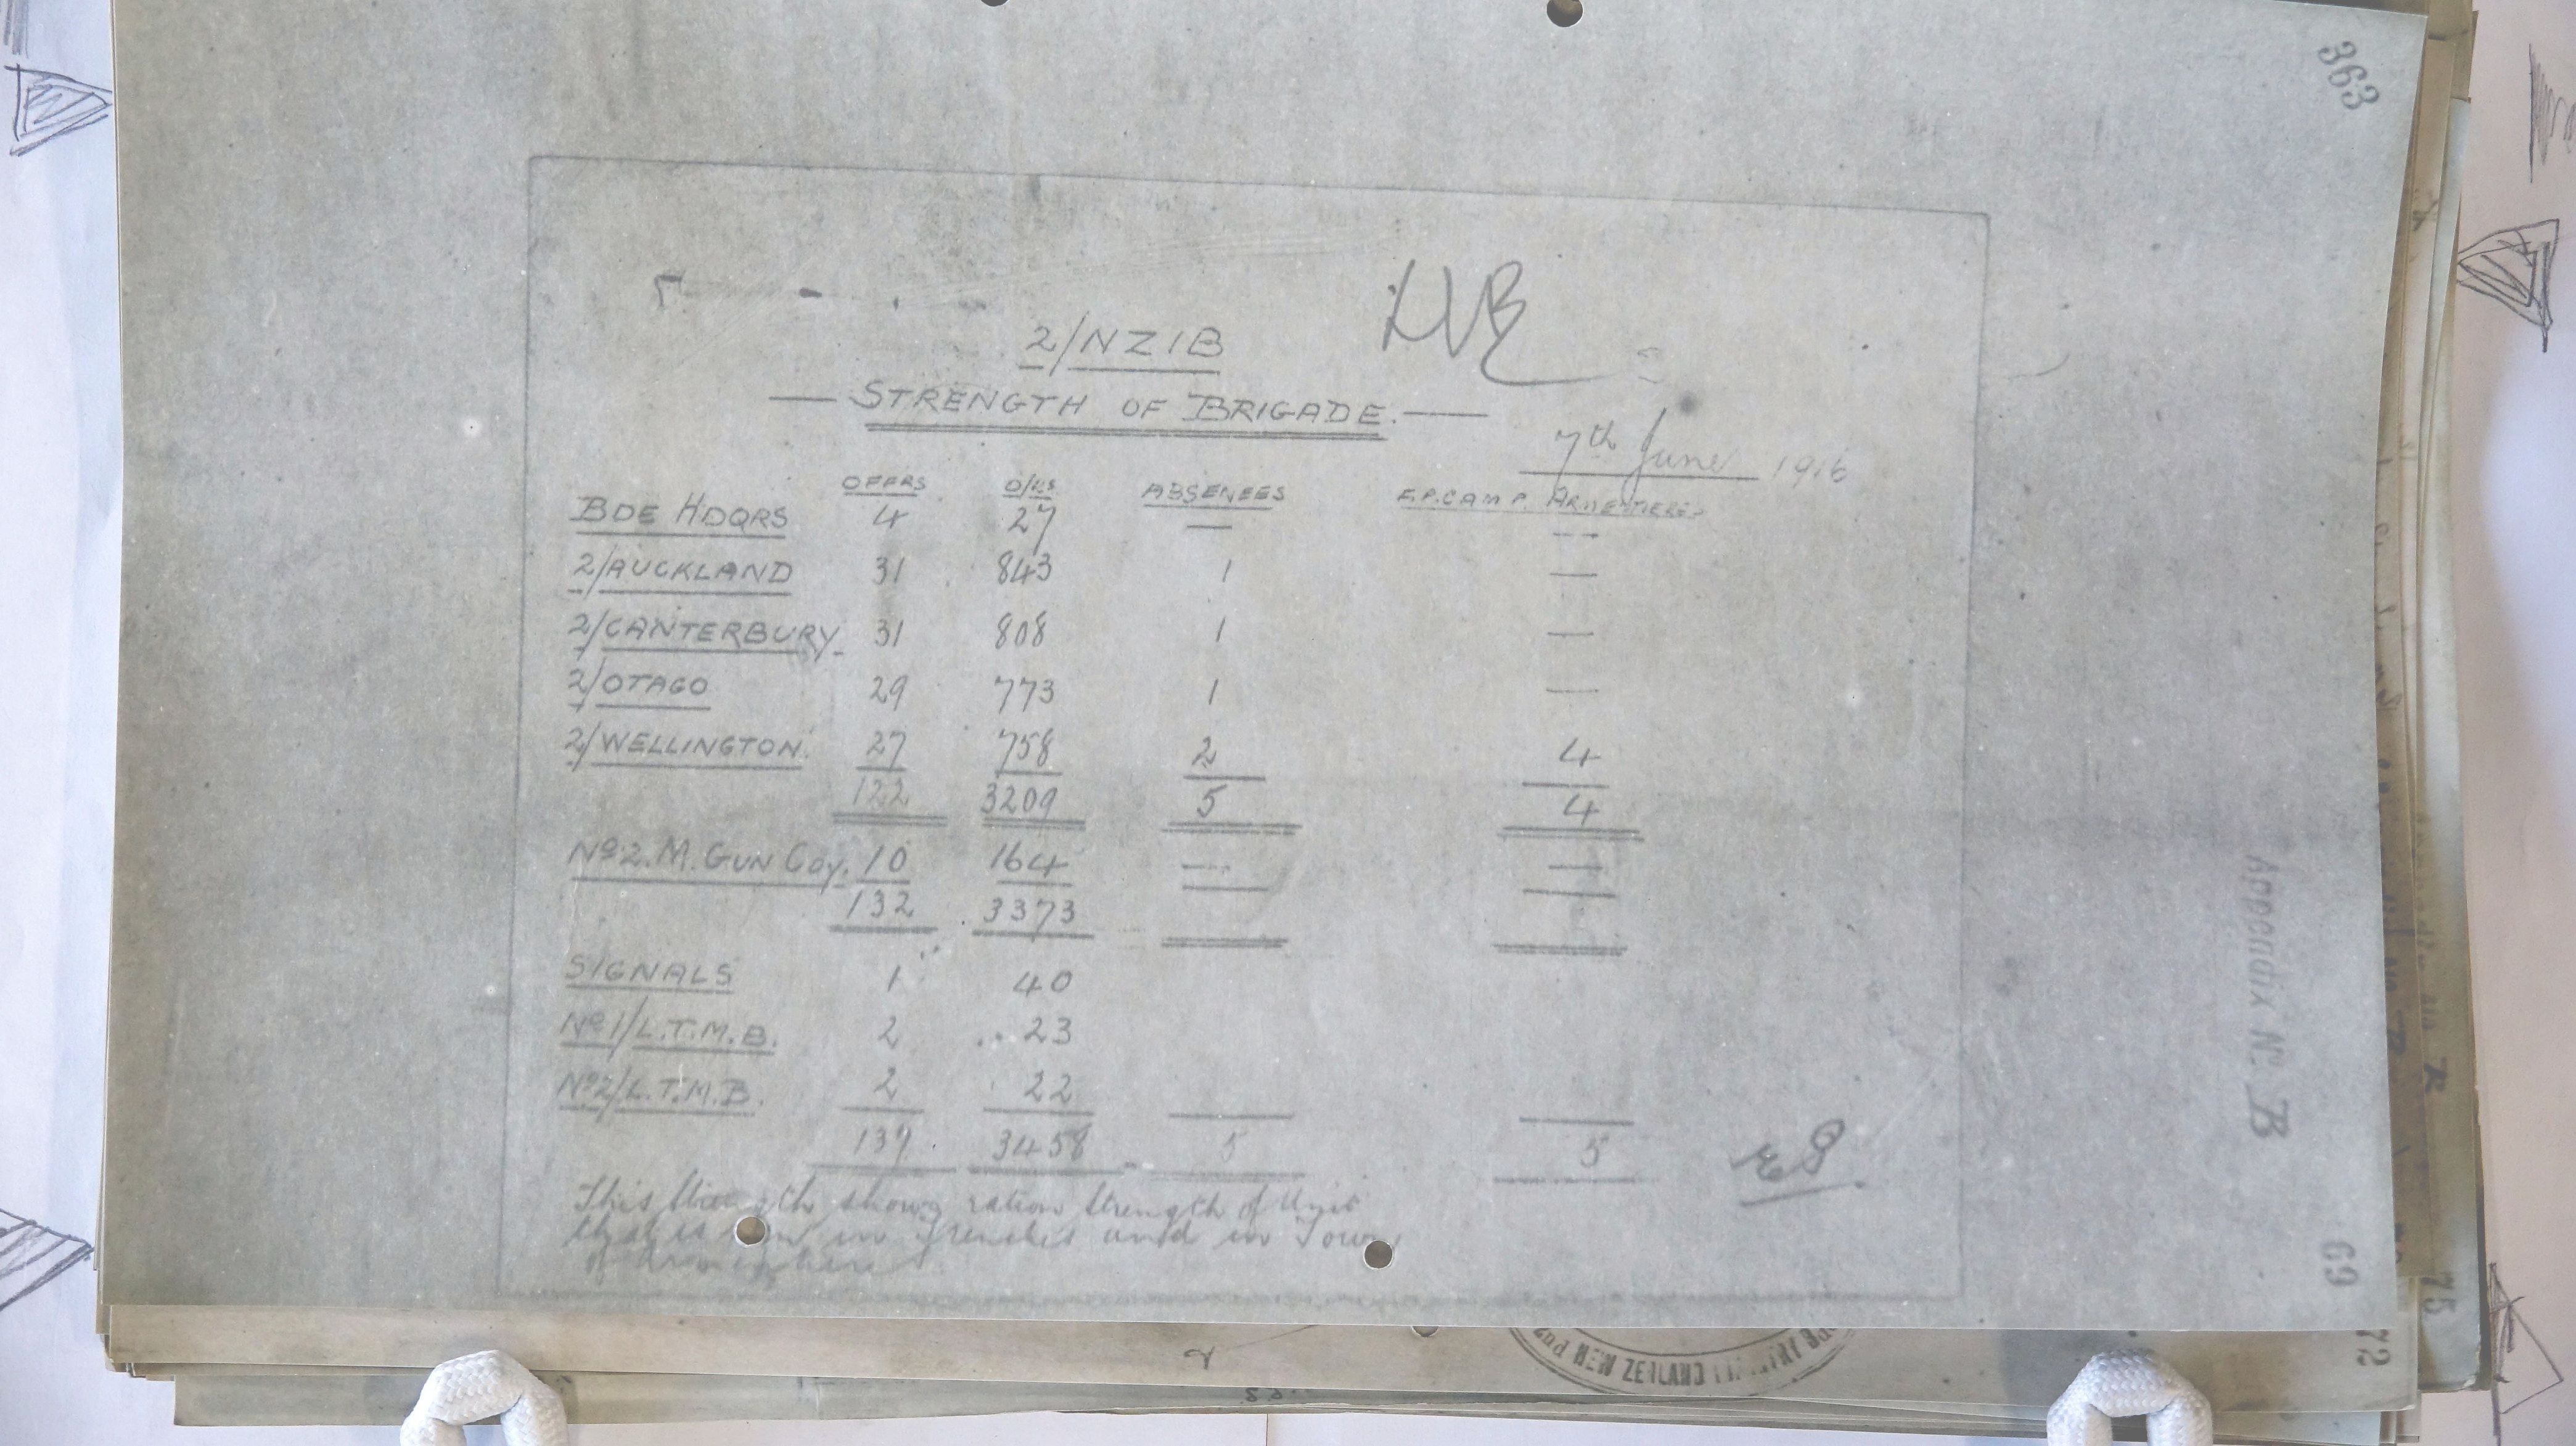 363
2/NZIB
— STRENGTH OF BRIGADE. —
7th June 1916
OFFRS O/RS ABSENEES F.P. CAMP. ARMENTIERES
BDE HDQRS 4 27 — —
2/AUCKLAND 31 843 1 —
2/CANTERBURY 31 808 1 —
2/OTAGO 29 773 1 —
2/WELLINGTON. 27 758 2 4
122 3209 5 4
No 2. M. GUN Coy. 10 164 — —
132 3373
SIGNALS 1 40
No 1/L.T.M.B. 2 23
No 2/L.T.M.B. 2 22
137 3458 5 5
This Strength shows ration Strength of Unit
that is in Trenches and in Town
of
Appendix No. B
69
72
75
2nd NEW ZEALAND